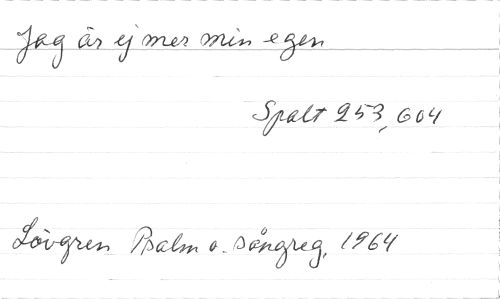 Jag är ej mer min egen
Spalt 253, 604
Lövgren Psalm o. sångreg, 1964